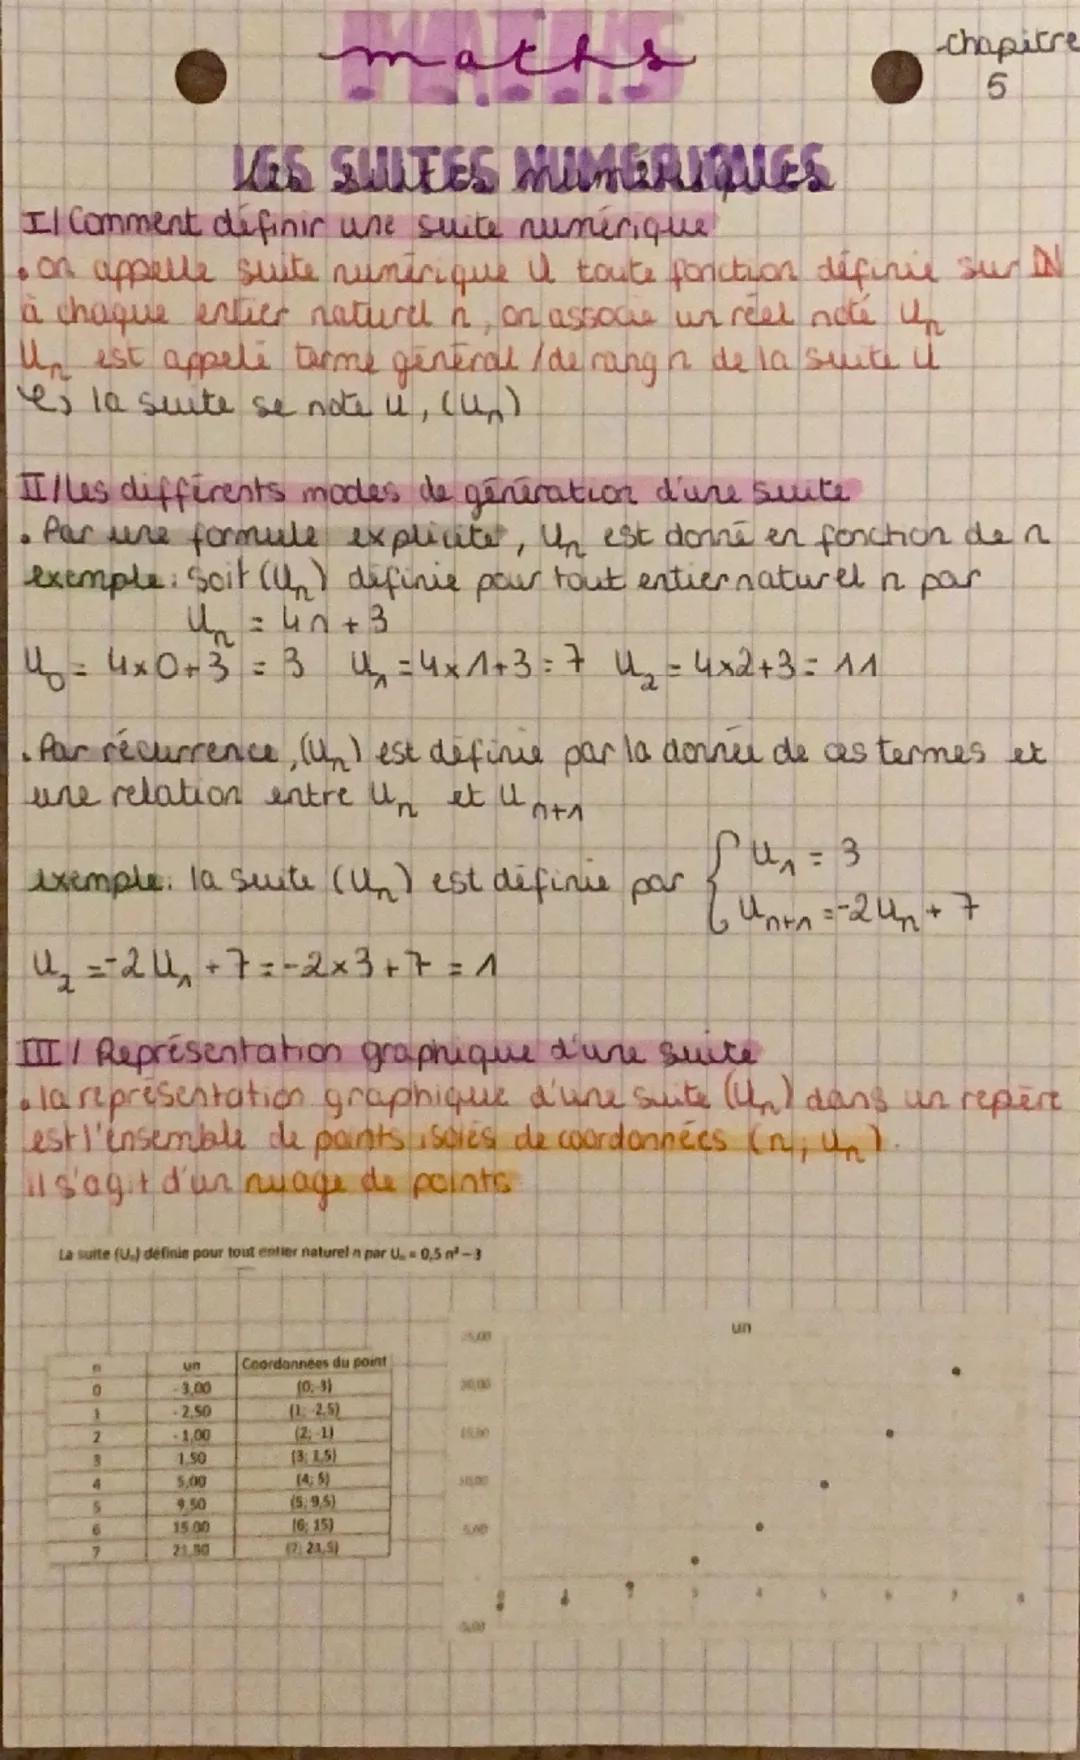 maths
chapitre
5
LES SUITES NUMERIQUES
I/ Comment définir une suite numérique
• on appelle suite numérique U toute fonction définie sur ℕ
à chaque entier naturel n, on associe un réel noté Un
Un est appelé terme général /de rang n de la suite U
↳ la suite se note u, (Un)
II/ les différents modes de génération d'une suite
• Par une formule explicite, Un est donné en fonction de n
exemple: Soit (Un) définie pour tout entier naturel n par
Un = 4n + 3
U0 = 4x0+3 = 3 U1 = 4x1+3 = 7 U2 = 4x2+3 = 11
• Par récurrence, (Un) est définie par la donnée de ces termes et
une relation entre Un et Un+1
exemple: la suite (Un) est définie par { U1 = 3
Un+1 = -2Un + 7
U2 = -2U1 + 7 = -2x3+7 = 1
III / Représentation graphique d'une suite
• la représentation graphique d'une suite (Un) dans un repère
est l'ensemble de points isolés de coordonnées (n; Un).
il s'agit d'un nuage de points
La suite (Un) définie pour tout entier naturel n par Un = 0,5 n² – 3
n un Coordonnées du point
0 -3,00 (0;-3)
1 -2,50 (1; -2,5)
2 -1,00 (2; -1)
3 1,50 (3; 1,5)
4 5,00 (4; 5)
5 9,50 (5; 9,5)
6 15,00 (6; 15)
7 21,50 (7; 21,5)
un
25,00
20,00
15,00
10,00
5,00
-5,00
0 1 2 3 4 5 6 7 8